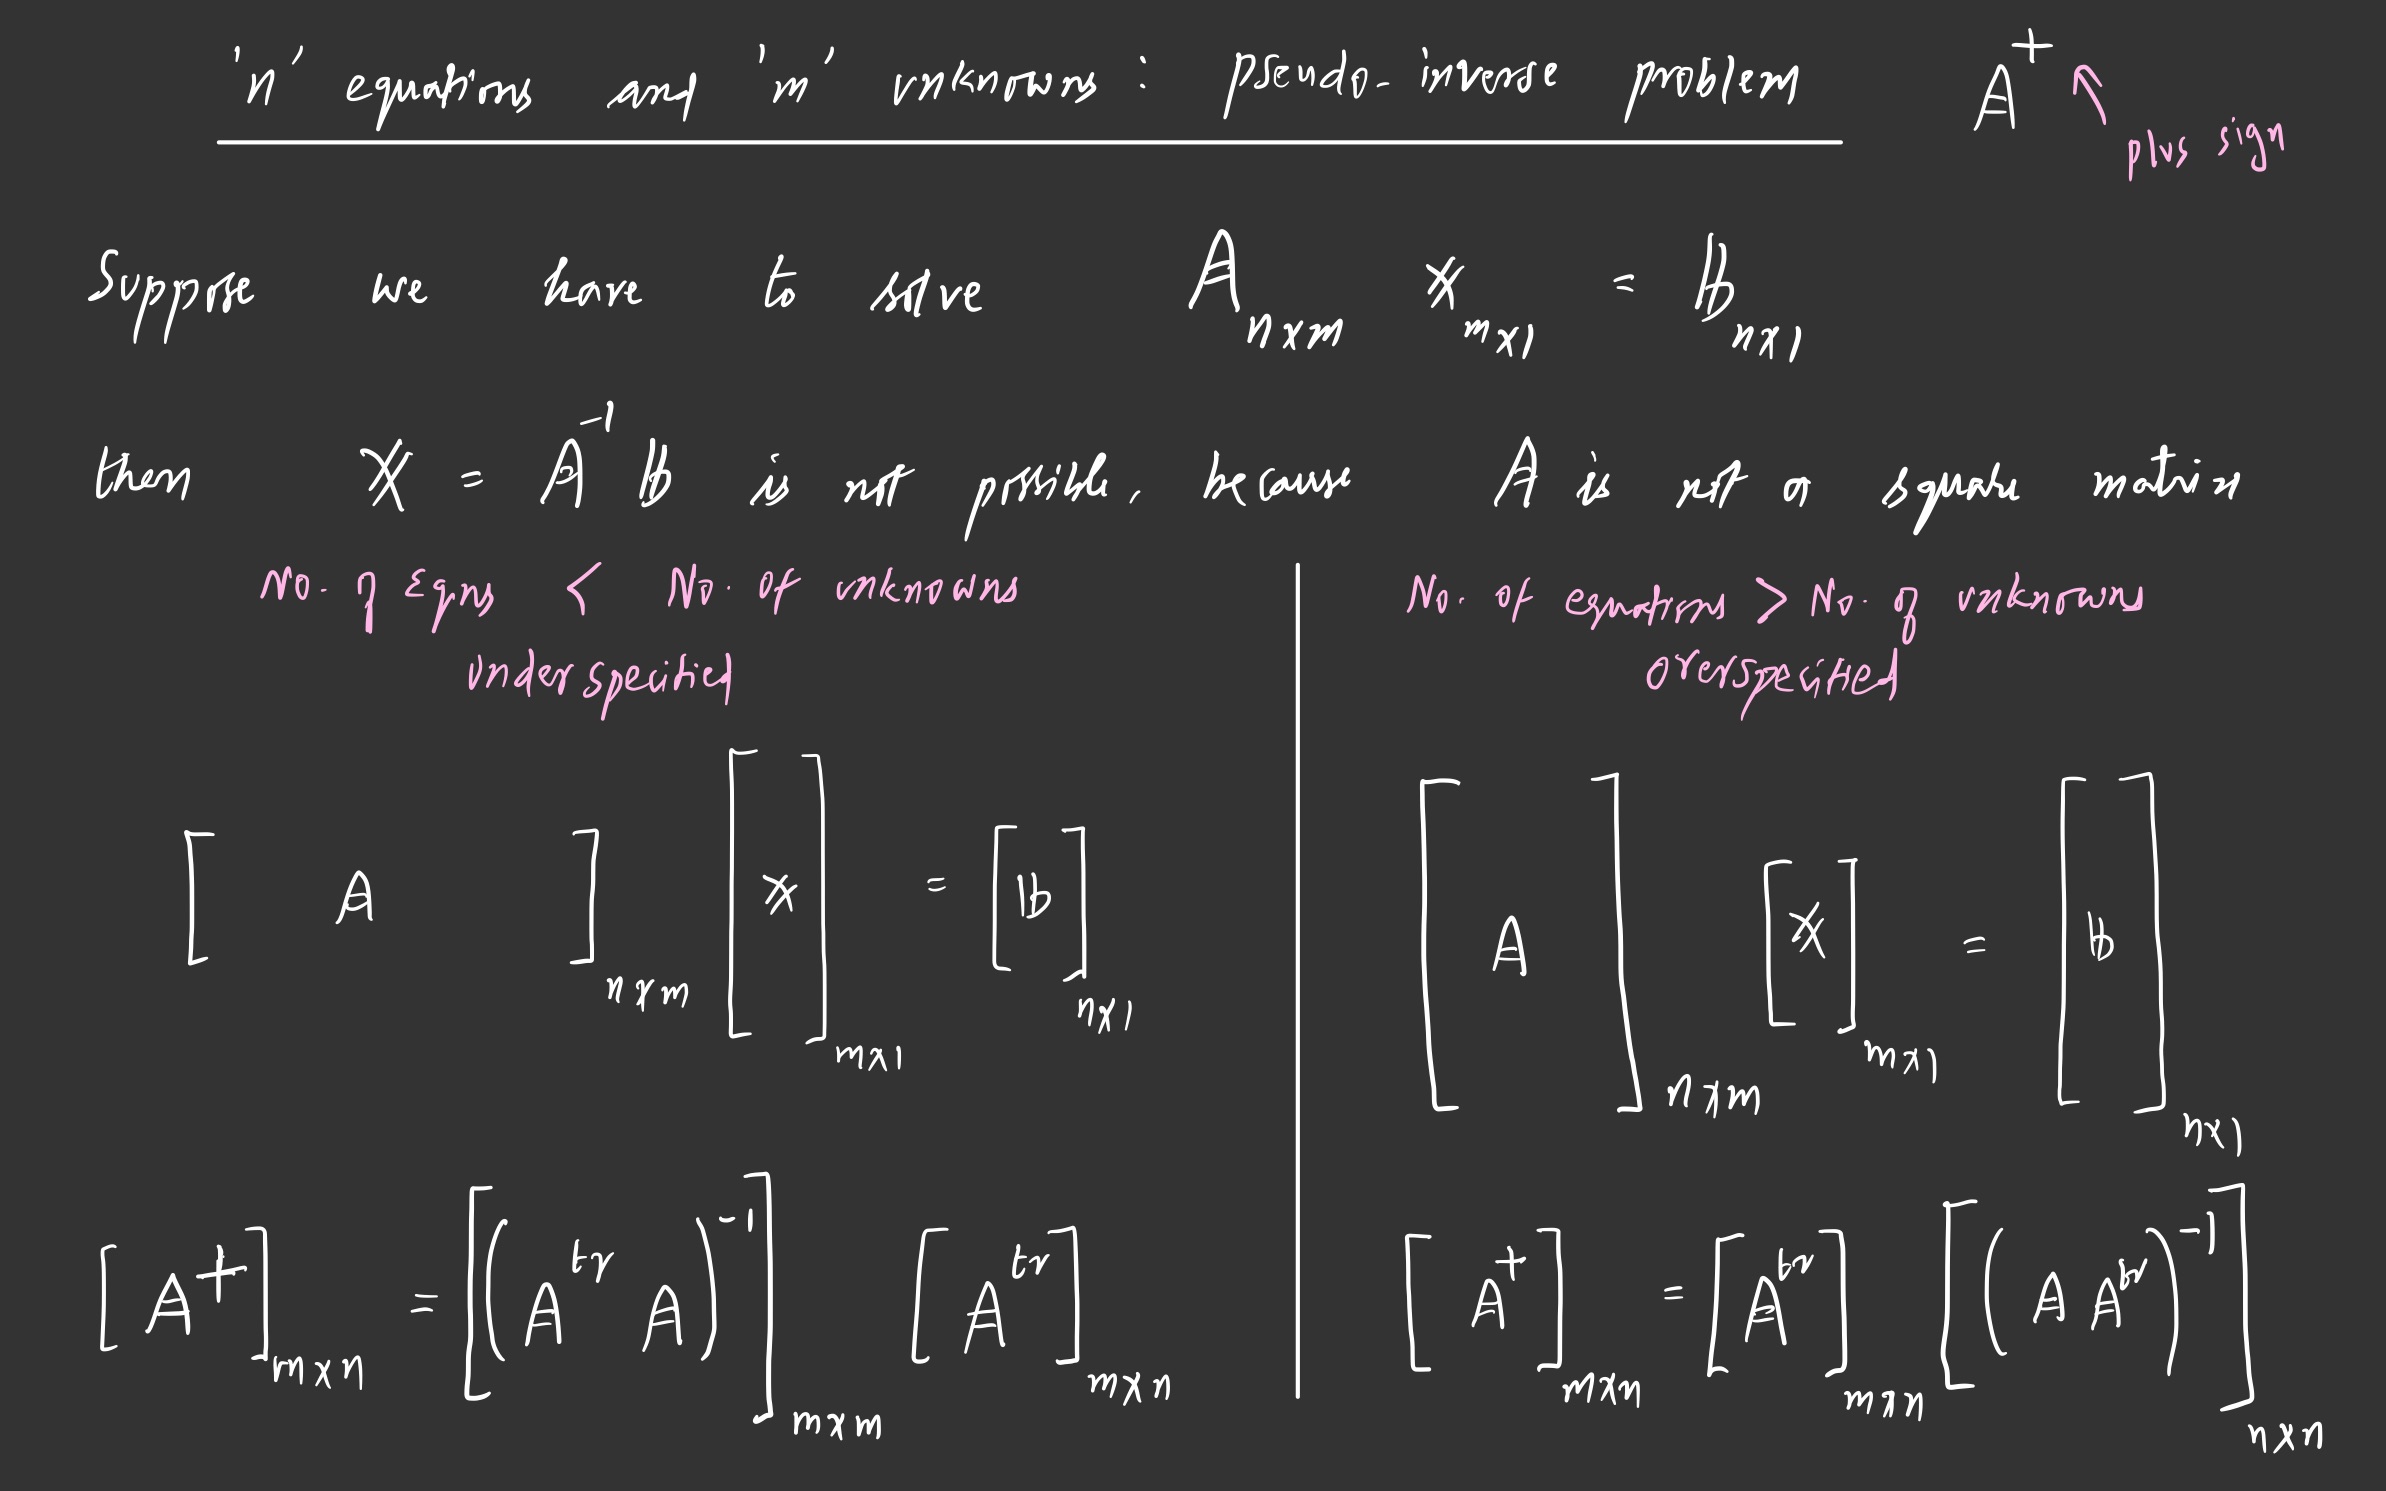 'n' equations and 'm' unknowns : pseudo-inverse problem
A⁺
plus sign
Suppose we have to solve A n×m x m×1 = b n×1
then x = A⁻¹ b is not possible, because A is not a square matrix
No. of Eqns < No. of unknowns
underspecified
[ A ] n×m [ x ] m×1 = [ b ] n×1
[ A⁺ ] m×n = [ ( A^tr A )⁻¹ ] m×m [ A^tr ] m×n
No. of equations > No. of unknowns
overspecified
[ A ] n×m [ x ] m×1 = [ b ] n×1
[ A⁺ ] m×n = [ A^tr ] m×n [ ( A A^tr )⁻¹ ] n×n